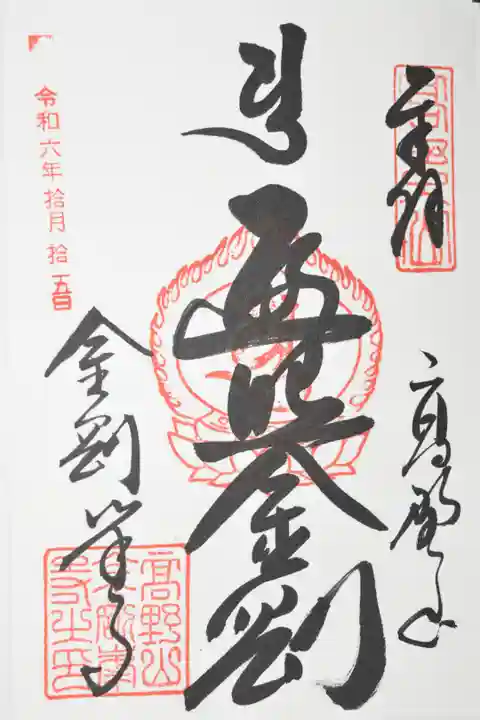 奉拝
高野山
高野山
遍照金剛
令和六年拾月拾五日
金剛峯寺
高野山
金剛峯
寺之印